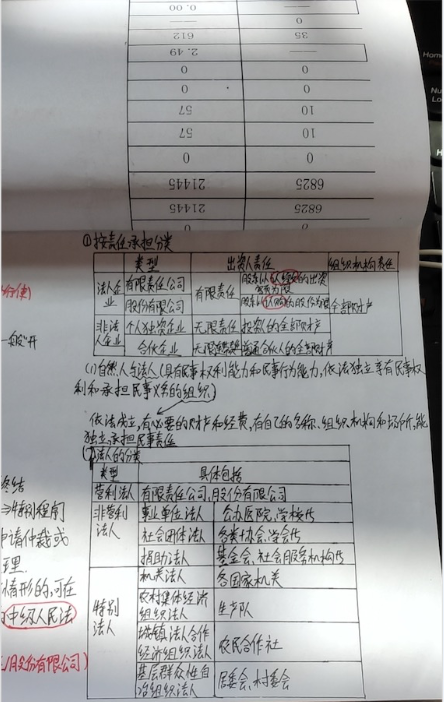 0.00
—
612
35
2.49
—
0
0
0
0
57
10
57
10
0
0
21445
6825
21445
6825
①按责任承担分类
类型 出资人责任 组织机构责任
法人企业 有限责任公司 有限责任 股东以认缴的出资额为限
股份有限公司 股东以认购的股份为限 全部财产
非法人企业 个人独资企业 无限责任 投资人的全部财产
合伙企业 无限 普通合伙人的全部财产
(1)自然人与法人(具有民事权利能力和民事行为能力,依法独立享有民事权
利和承担民事义务的组织)
依法成立,有必要的财产和经费,有自己的名称、组织机构和场所,能
独立承担民事责任
法人的分类
类型 具体包括
营利法人 有限责任公司,股份有限公司
非营利法人 事业单位法人 公办医院,学校等
社会团体法人 各类协会,学会等
捐助法人 基金会,社会服务机构等
特别法人 机关法人 各国家机关
农村集体经济组织法人 生产队
城镇 法合作经济组织法人 农民合作社
基层群众性自治组织法人 居委会,村委会
终结
特别程序
申请仲裁或
理
情形的,可在
中级人民法
股份有限公司)